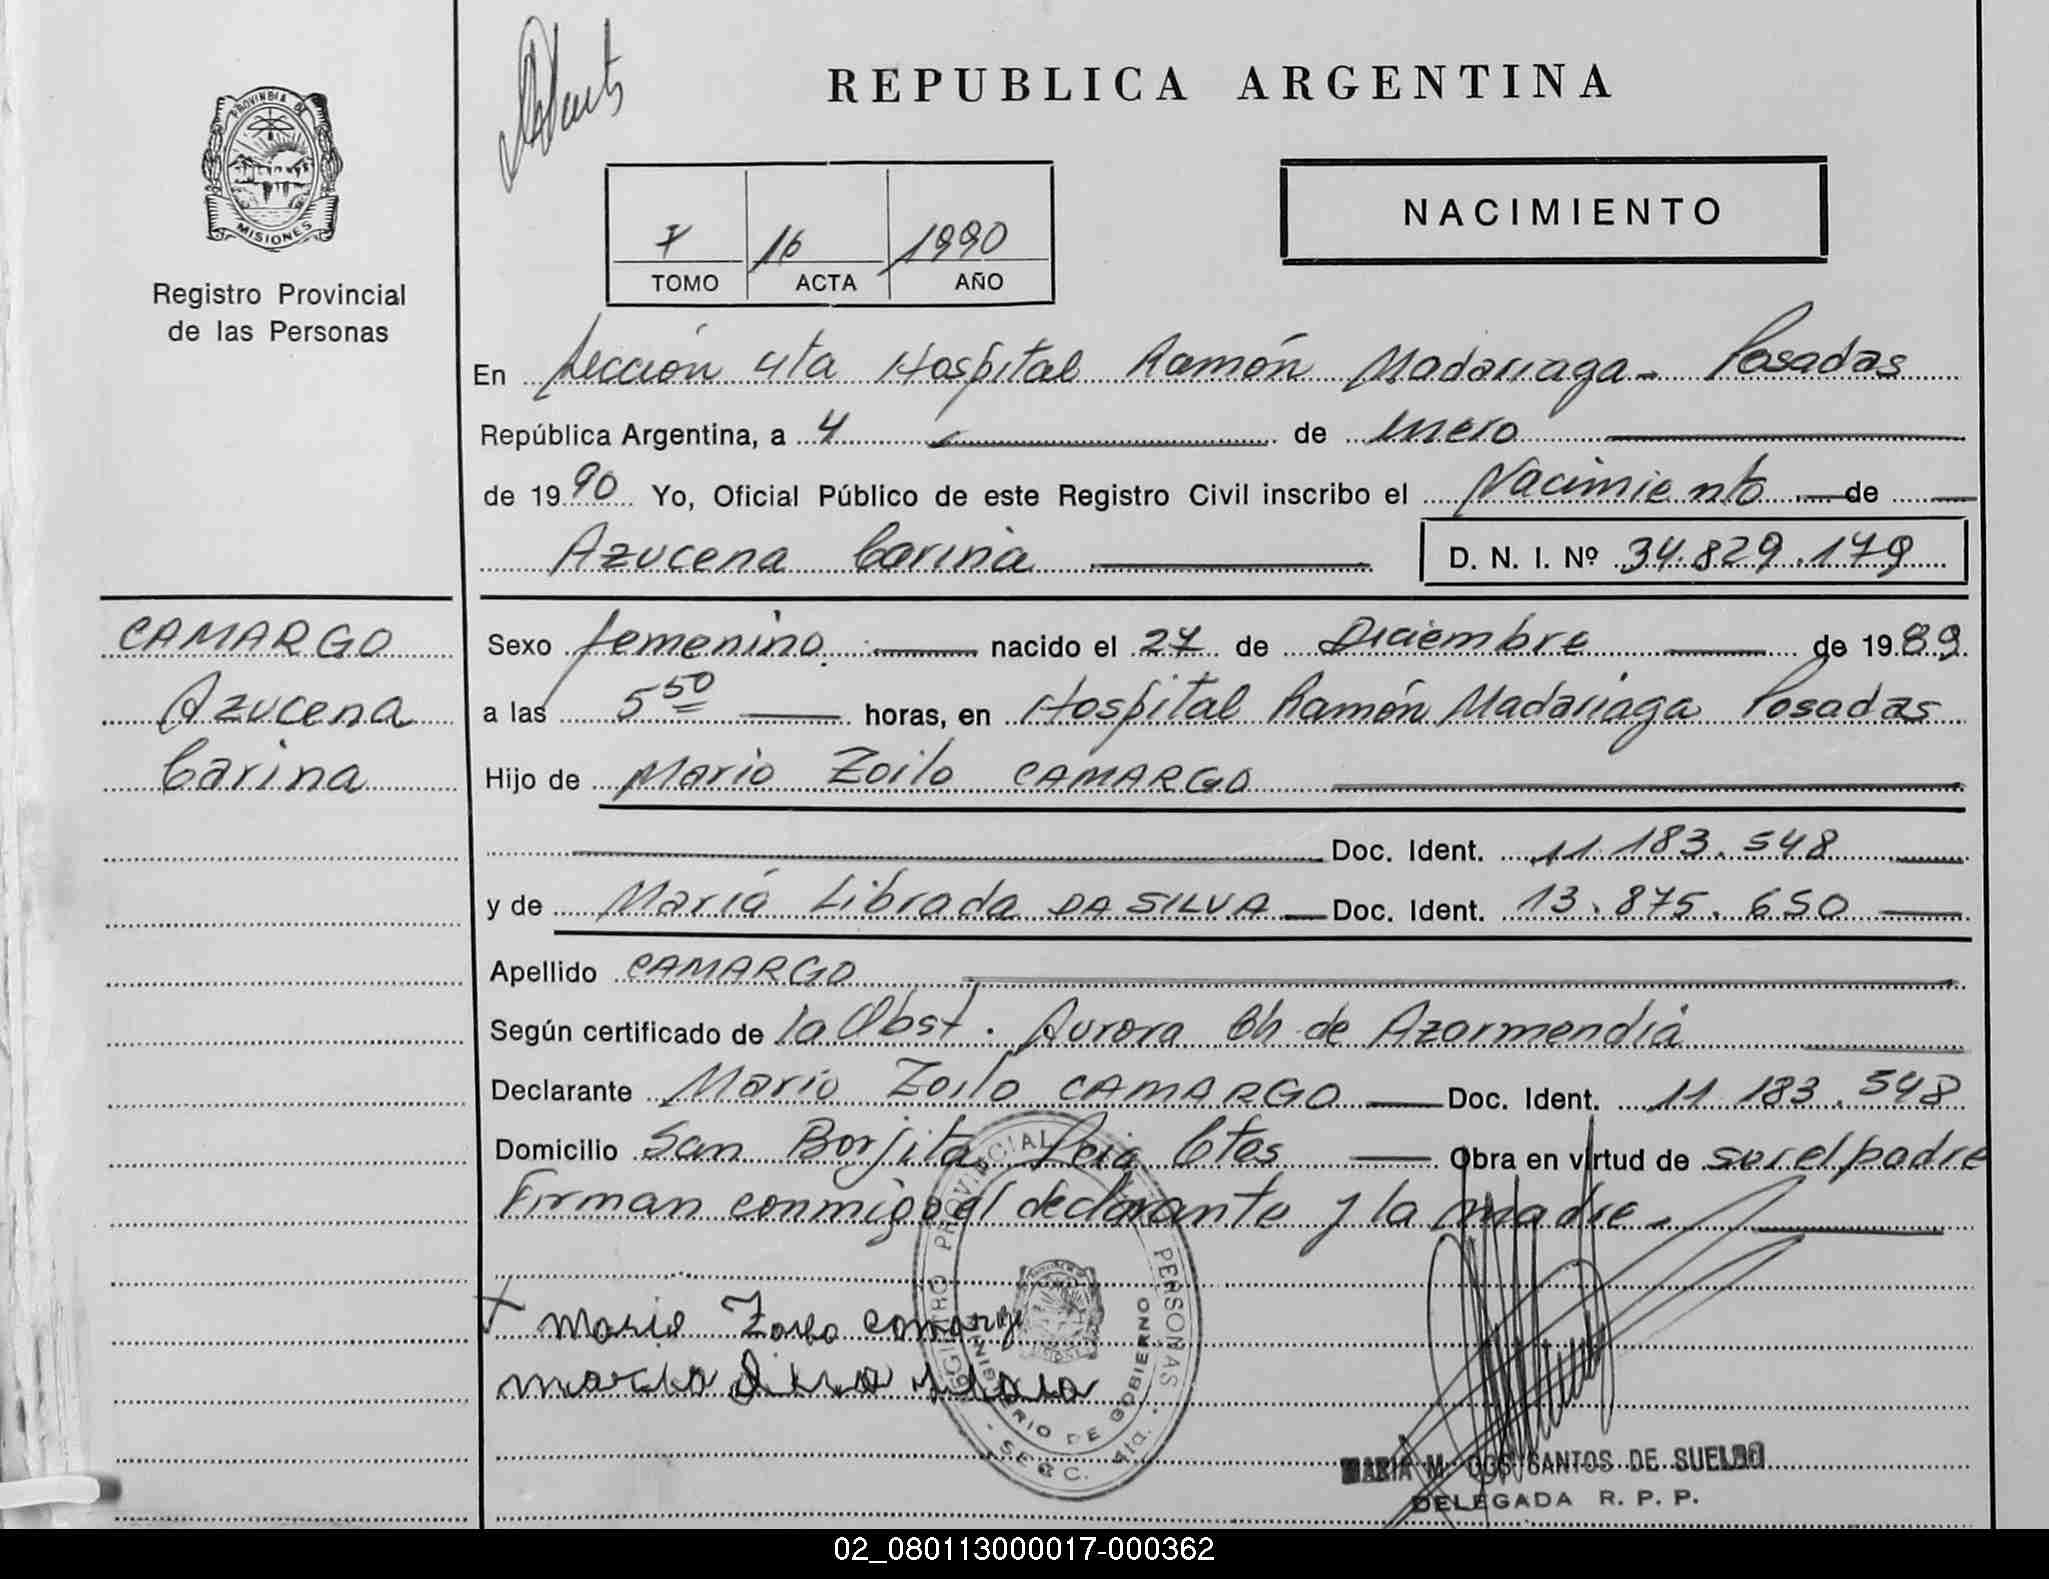 REPUBLICA ARGENTINA
PROVINCIA DE
MISIONES
Registro Provincial
de las Personas
7 16 1990
TOMO ACTA AÑO
NACIMIENTO
En Sección 4ta Hospital Ramón Madariaga - Posadas
República Argentina, a 4 de enero
de 1990 Yo, Oficial Público de este Registro Civil inscribo el Nacimiento de
Azucena Carina D. N. I. Nº 34.829.179
CAMARGO
Azucena
Carina
Sexo femenino nacido el 27 de Diciembre de 1989
a las 5 50 horas, en Hospital Ramón Madariaga Posadas
Hijo de Mario Zoilo CAMARGO
Doc. Ident. 11.183.548
y de María Librada DA SILVA Doc. Ident. 13.875.650
Apellido CAMARGO
Según certificado de la Obst. Aurora Ch de Azarmendia
Declarante Mario Zoilo CAMARGO Doc. Ident. 11.183.548
Domicilio San Borjita Ctes Obra en virtud de ser el padre
Firman conmigo el declarante y la madre.
x Mario Zoilo Camargo
REGISTRO PROVINCIAL PERSONAS
MINISTERIO DE GOBIERNO
- SECC. 4ta. -
MARIA M. DOS SANTOS DE SUELDO
DELEGADA R. P. P.
02_080113000017-000362